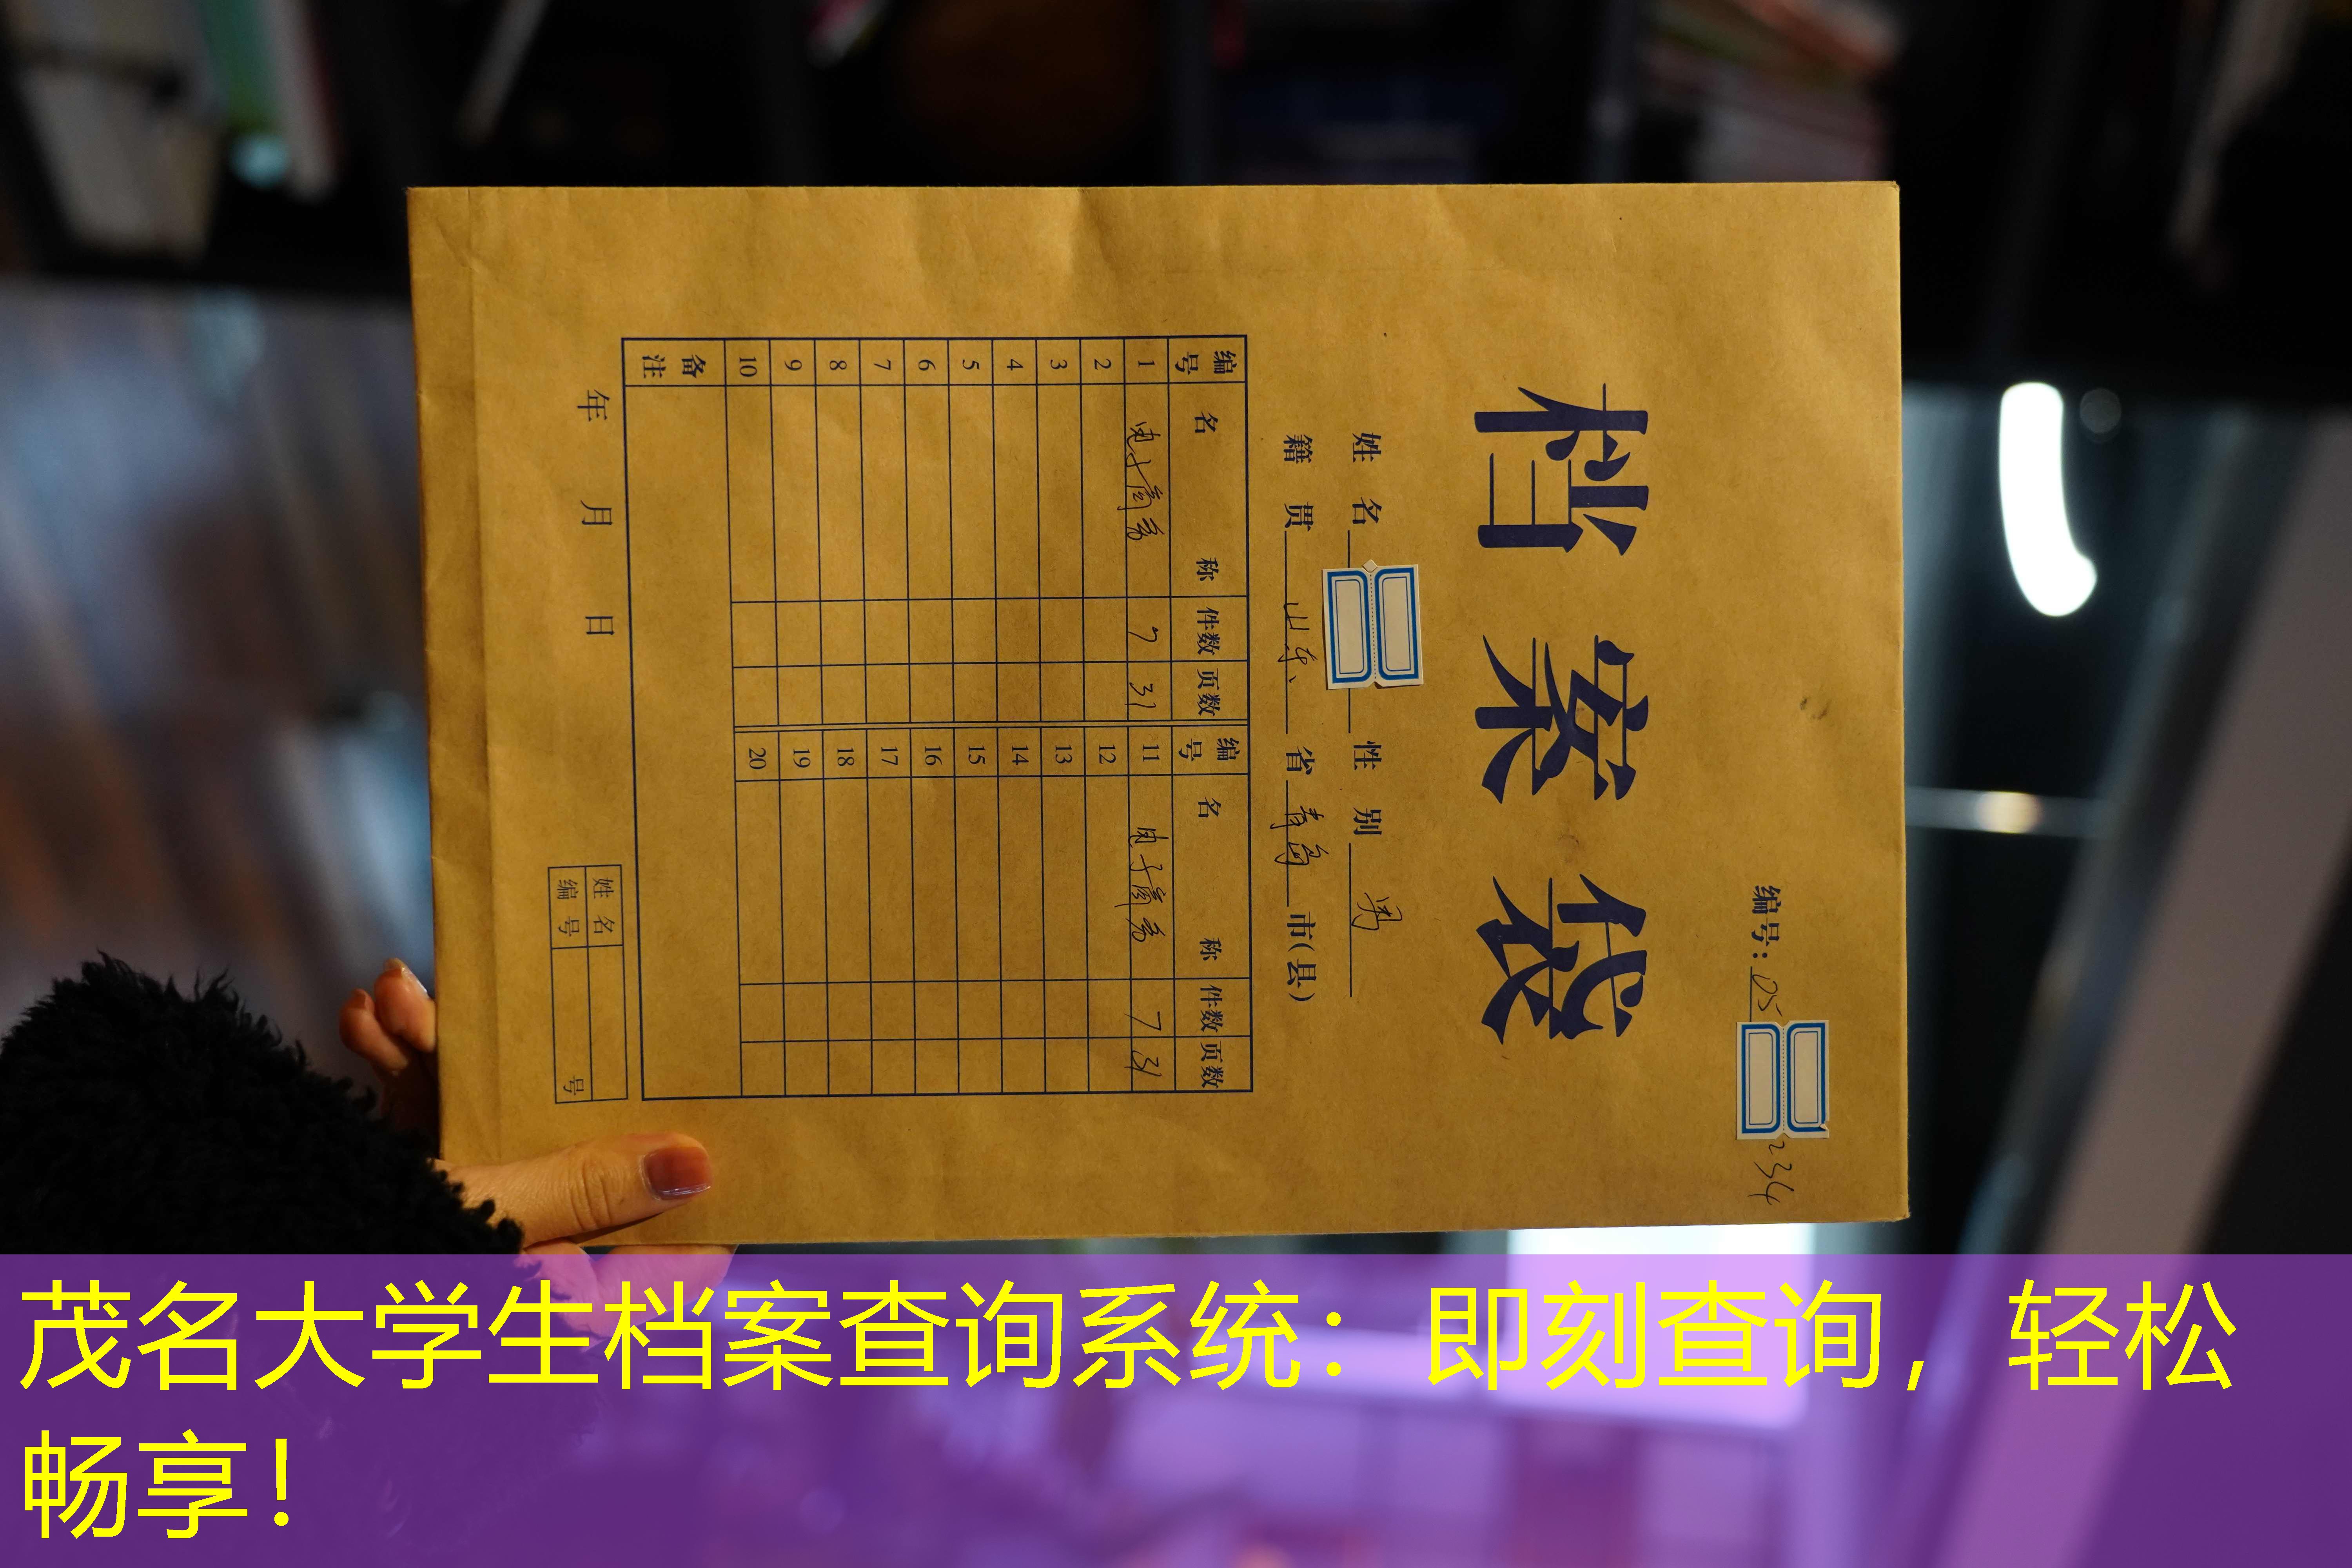 编号：05 234
档案袋
姓名 性别 男
籍贯 山东 省 青岛 市(县)
编号 名称 件数 页数 编号 名称 件数 页数
1 7 31 11 7 31
2 12
3 13
4 14
5 15
6 16
7 17
8 18
9 19
10 20
备注
姓名
编号 号
年 月 日
茂名大学生档案查询系统：即刻查询，轻松
畅享！